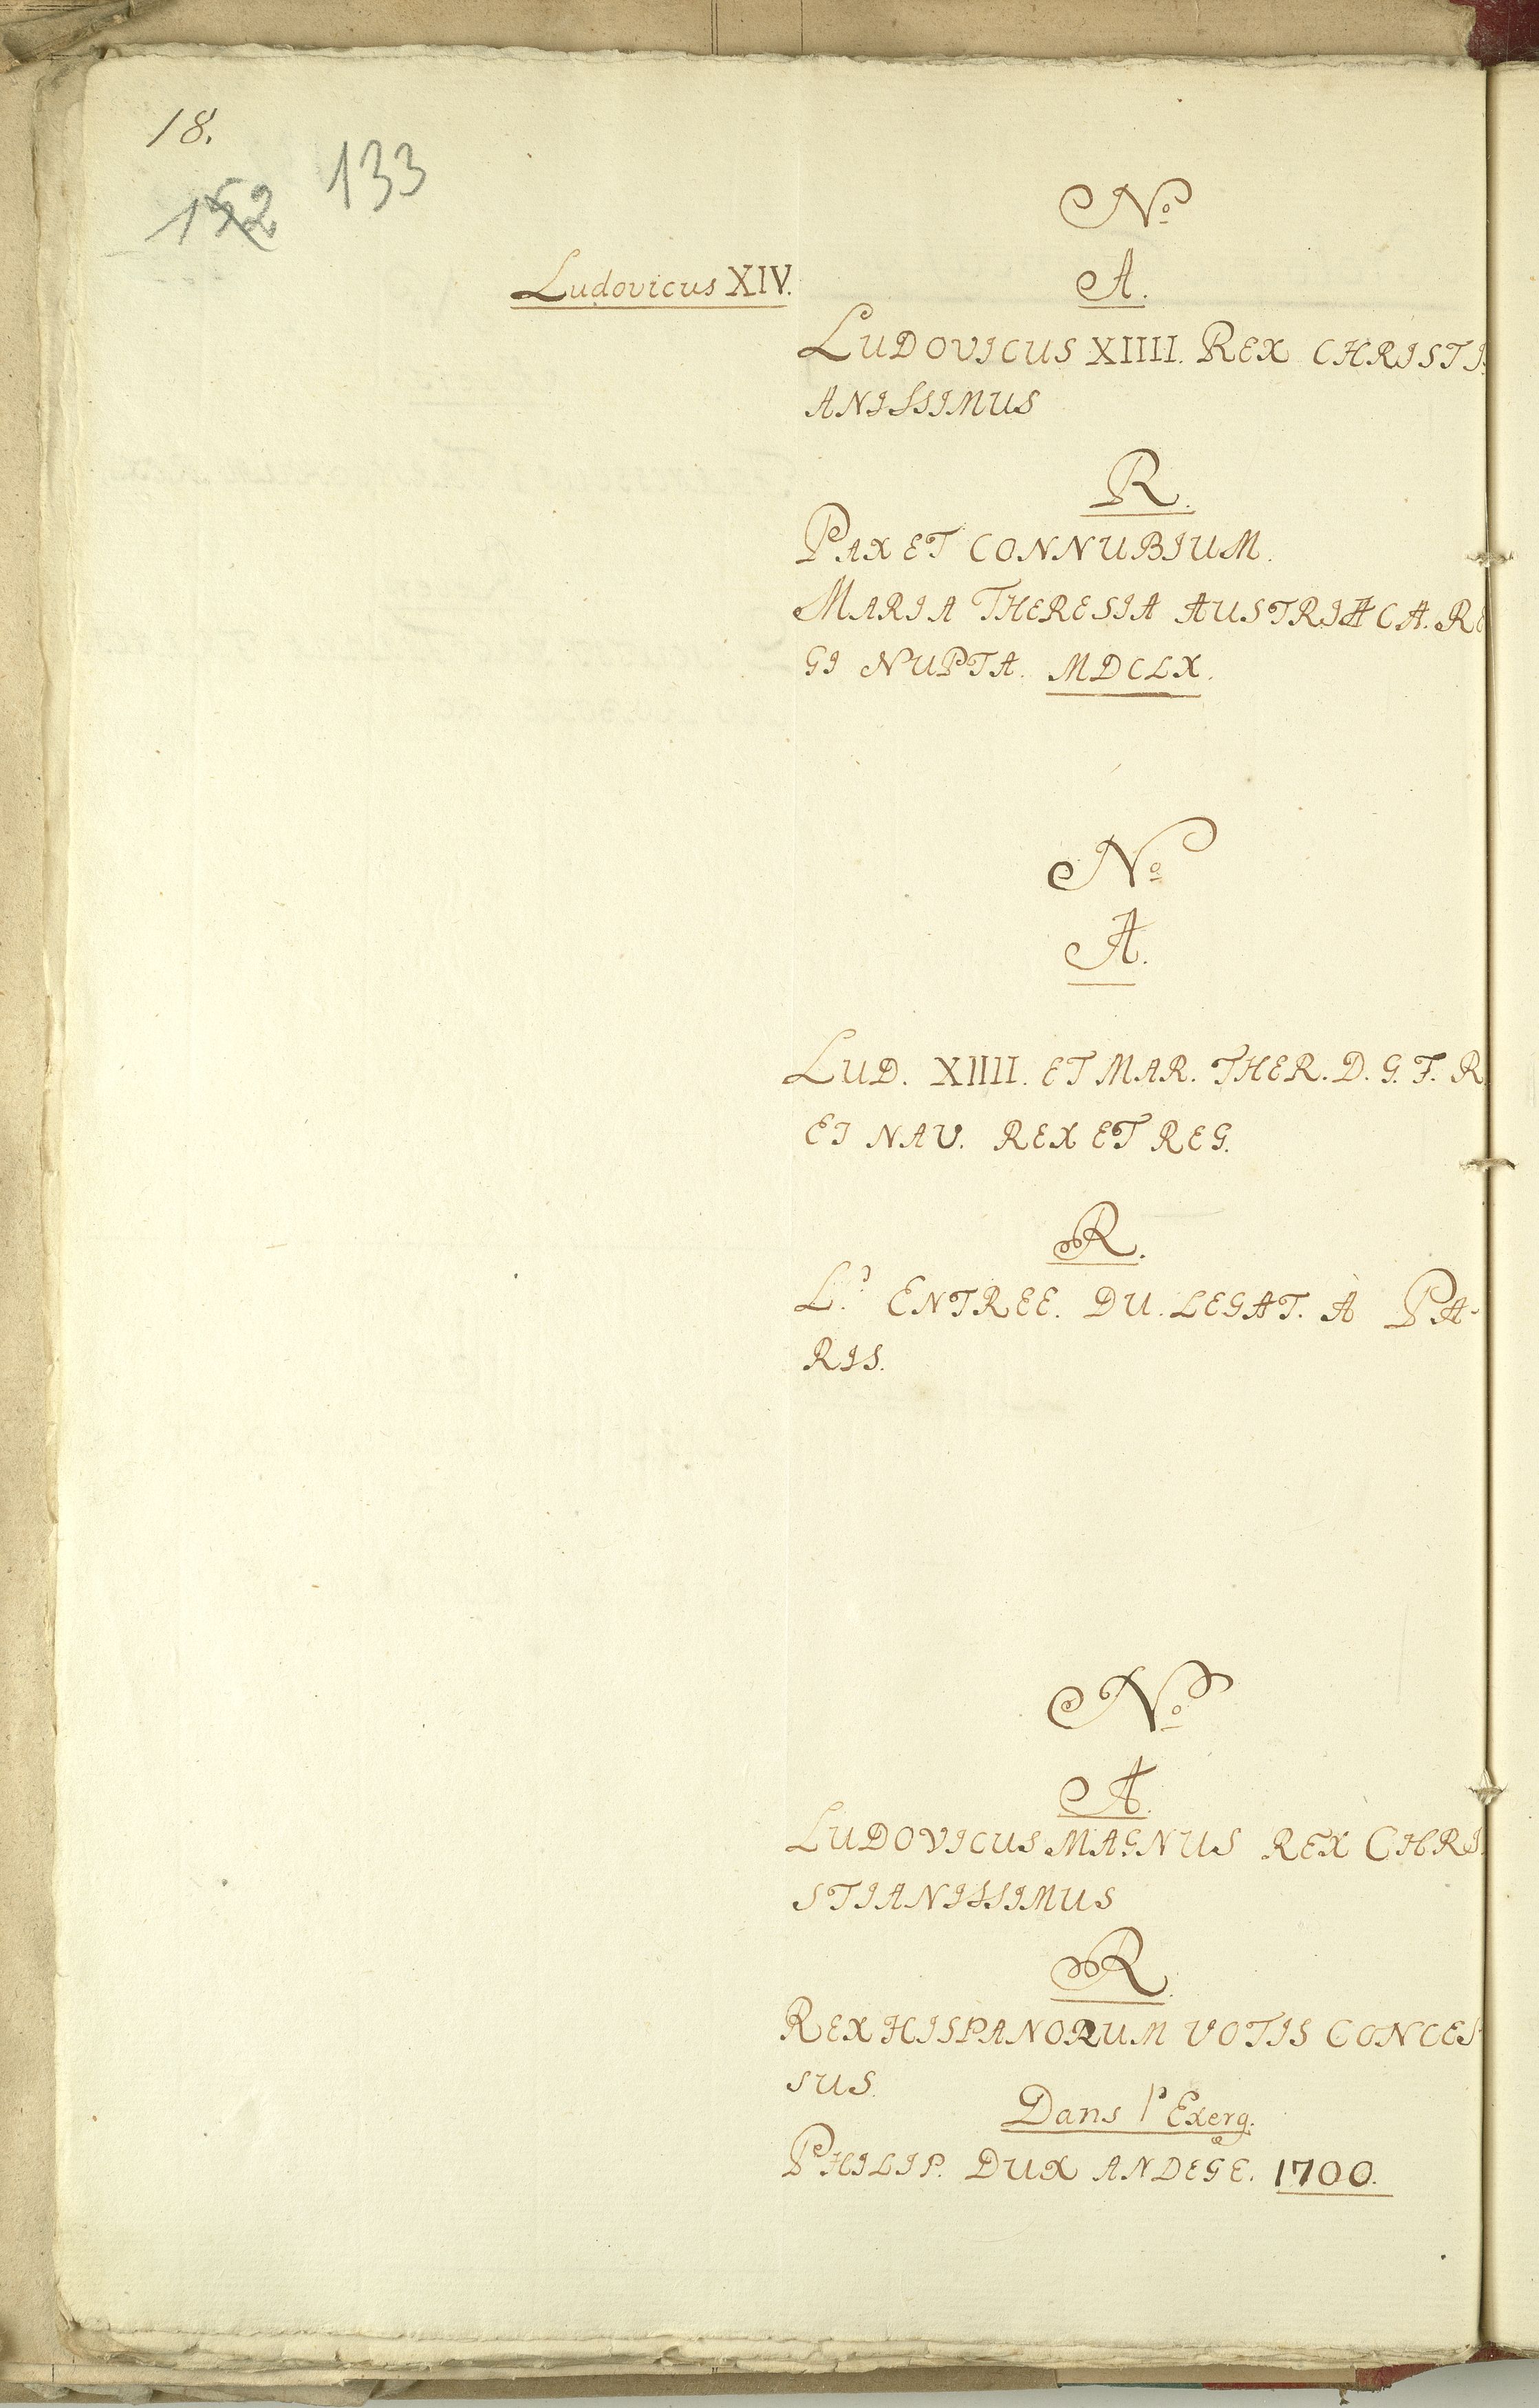 18.
133
152
Nº
Ludovicus XIV.
A.
LUDOVICUS XIIII. REX CHRISTI
ANISSIMUS
R.
PAX ET CONNUBIUM.
MARIA THERESIA AUSTRIACA. RE
GI NUPTA. MDCLX.
Nº
A.
LUD. XIIII. ET MAR. THER. D. G. F. R
ET NAV. REX ET REG.
R.
L' ENTREE. DU. LEGAT. A PA-
RIS.
Nº
A.
LUDOVICUS MAGNUS REX CHRI
STIANISSIMUS
R.
REX HISPANORUM VOTIS CONCES
SUS.
Dans l'Exerg.
PHILIP. DUX ANDEGE. 1700.